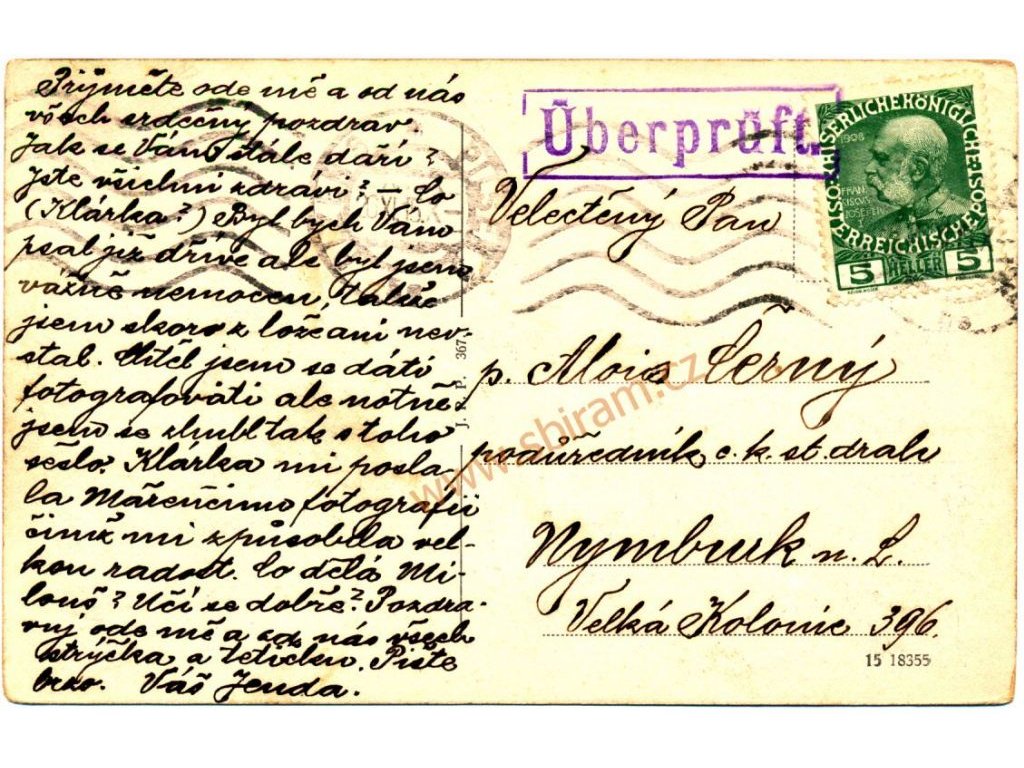 Přijměte ode mě a od nás
všech srdečný pozdrav.
Jak se Vám stále daří?
Jste všichni zdrávi? — Co
(Klárka?) Byl bych Vám
psal již dříve ale byl jsem
vážně nemocen, takže
jsem skoro z ložeani nev-
stal. Chtěl jsem se dáti
fotografovati ale notně
jsem se zhubl tak s toho
sešlo. Klárka mi posla-
la Mařenčinu fotografii
činíž mi způsobila vel-
kou radost. Co dělá Mi-
louš? Učí se dobře? Pozdra-
vuj ode mě a od nás všech
strýčka a tetičku. Pište
brzo. Váš Jenda.
J. P. 367
Überprüft.
KAISERLICHE KÖNIGLICHE ÖSTERREICHISCHE POST
1908
FRAN
CISCVS
JOSEF I
5 HELLER 5
Velectěný Pan
p. Alois Černý
podúředník c. k. st. drah
Nymburk n. L.
Velká Kolonie 396.
15 18355
www.sbiram.cz